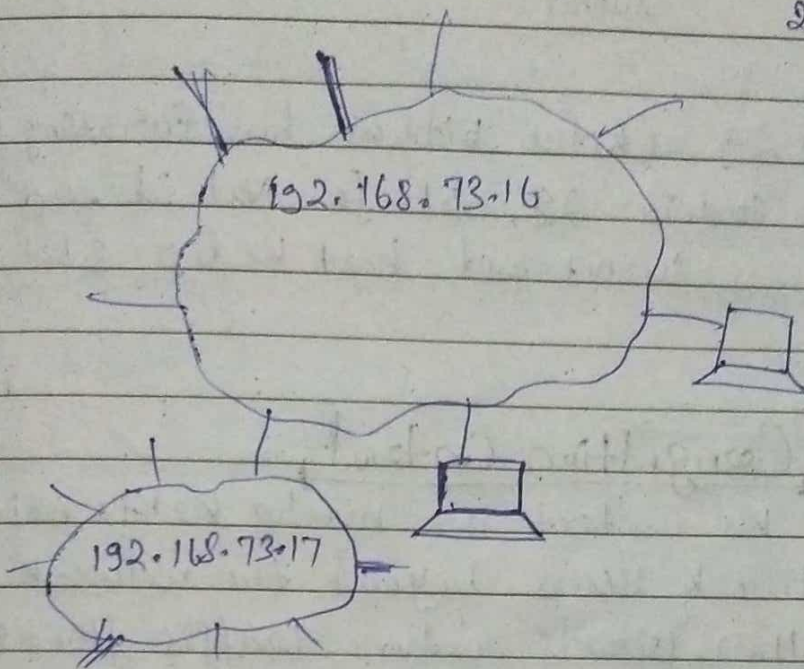 2
192.168.73.16
192.168.73.17